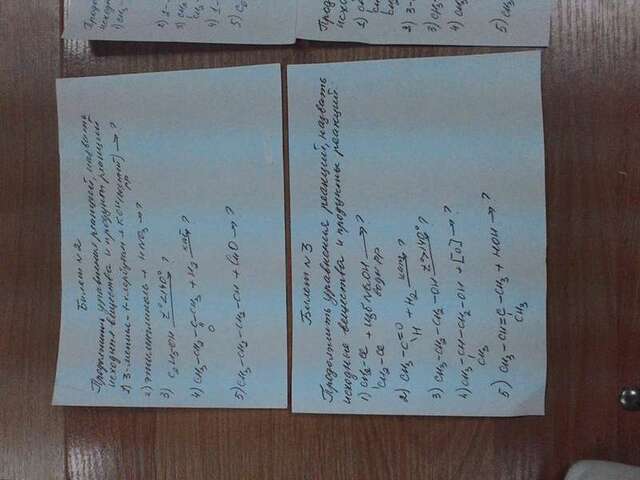 Билет №2
Продолжить уравнения реакций, назвать
исходные вещества и продукты реакций
1) 3-метил-1-хлорбутан + KOH(водный) р-р → ?
2) этилэтаноль + HNO3 → ?
3) C2H5OH t°<140° → ?
4) CH3-CH2-C-CH3 + H2 кат. → ?
O
5) CH3-CH2-CH2-OH + CuO → ?
Билет №3
Продолжить уравнения реакций, назвать
исходные вещества и продукты реакций.
1) CH2-Cl + изб NaOH → ?
CH2-Cl водн р-р
2) CH3-C=O + H2 кат. → ?
H
3) CH3-CH2-CH2-OH t°>140° → ?
4) CH3-CH-CH2-OH + [O] → ?
CH3
5) CH3-CH=C-CH3 + HOH → ?
CH3